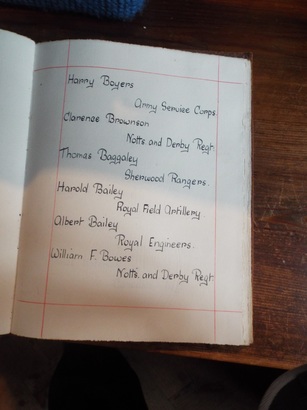 Harry Boyers
Army Service Corps.
Clarence Brownson
Notts and Derby Regt.
Thomas Baggaley
Sherwood Rangers.
Harold Bailey
Royal Field Artillery
Albert Bailey
Royal Engineers.
William F. Bowes
Notts. and Derby Regt.